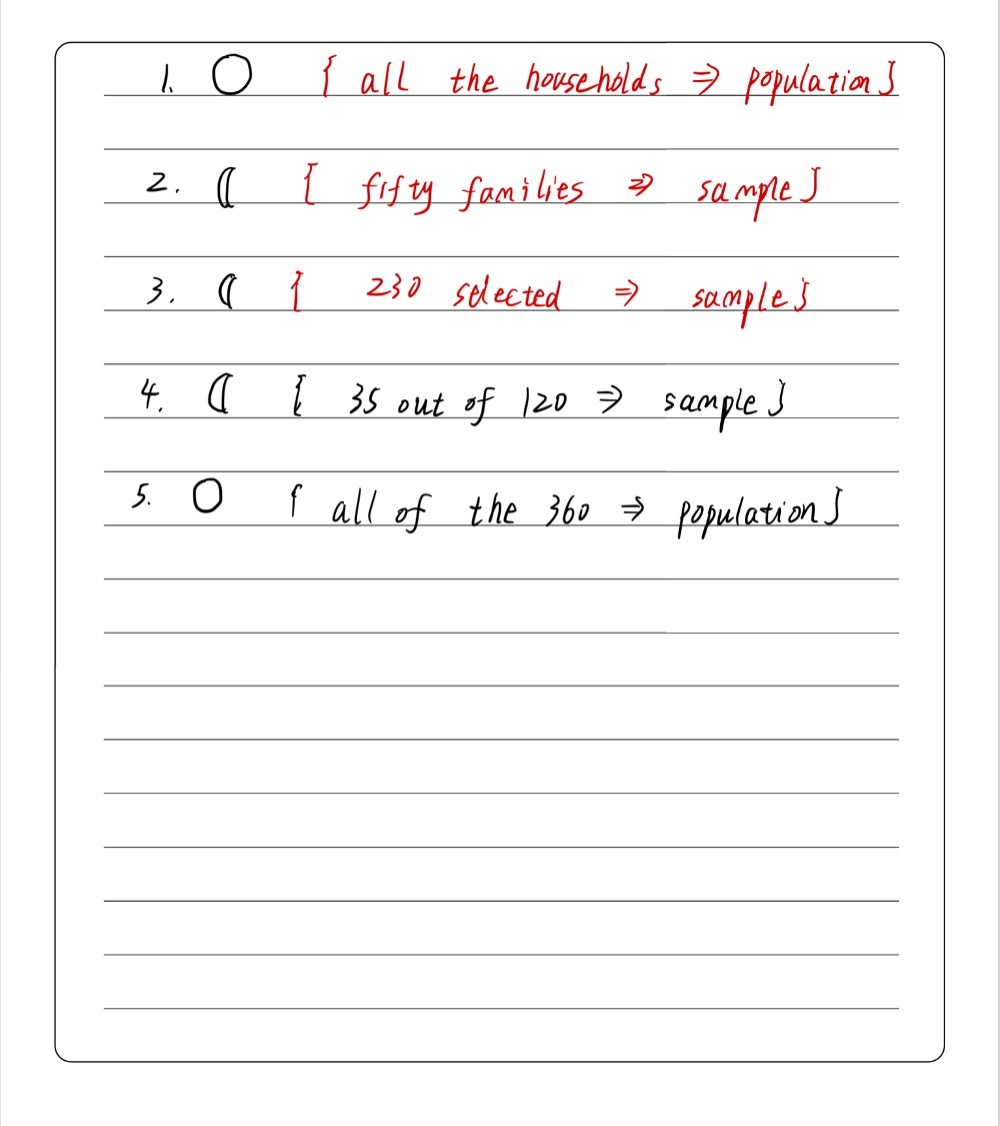 1. ○ { all the households ⇒ population }
2. ☾ [ fifty families ⇒ sample ]
3. ☾ { 230 selected ⇒ sample }
4. ☾ [ 35 out of 120 ⇒ sample }
5. ○ { all of the 360 ⇒ population ]